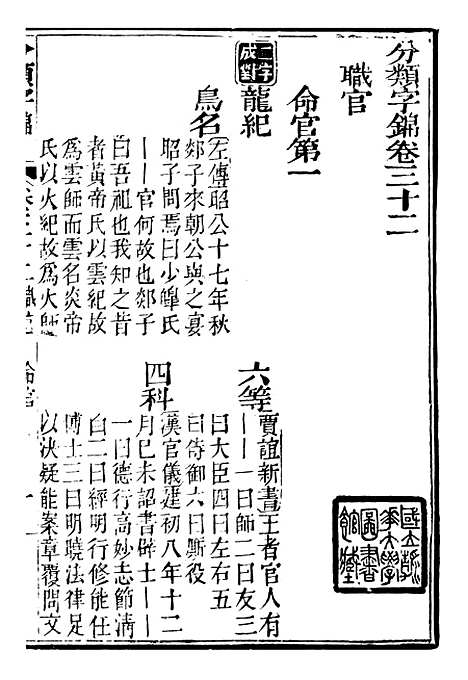 分類字錦卷三十二
職官
命官第一
二字成對
龍紀
鳥名
左傳昭公十七年秋
郯子來朝公與之宴
昭子問焉曰少皞氏
——官何故也郯子
曰吾祖也我知之昔
者黃帝氏以雲紀故
為雲師而雲名炎帝
氏以火紀故為火師
六等
賈誼新書王者官人有
——一曰師二曰友三
曰大臣四曰左右五
曰侍御六曰廝役
四科
漢官儀建初八年十二
月己未詔書辟士——
一曰德行高妙志節清
白二曰經明行修能任
博士三曰明曉法律足
以決疑能案章覆問文
國立浙江大學圖書館藏